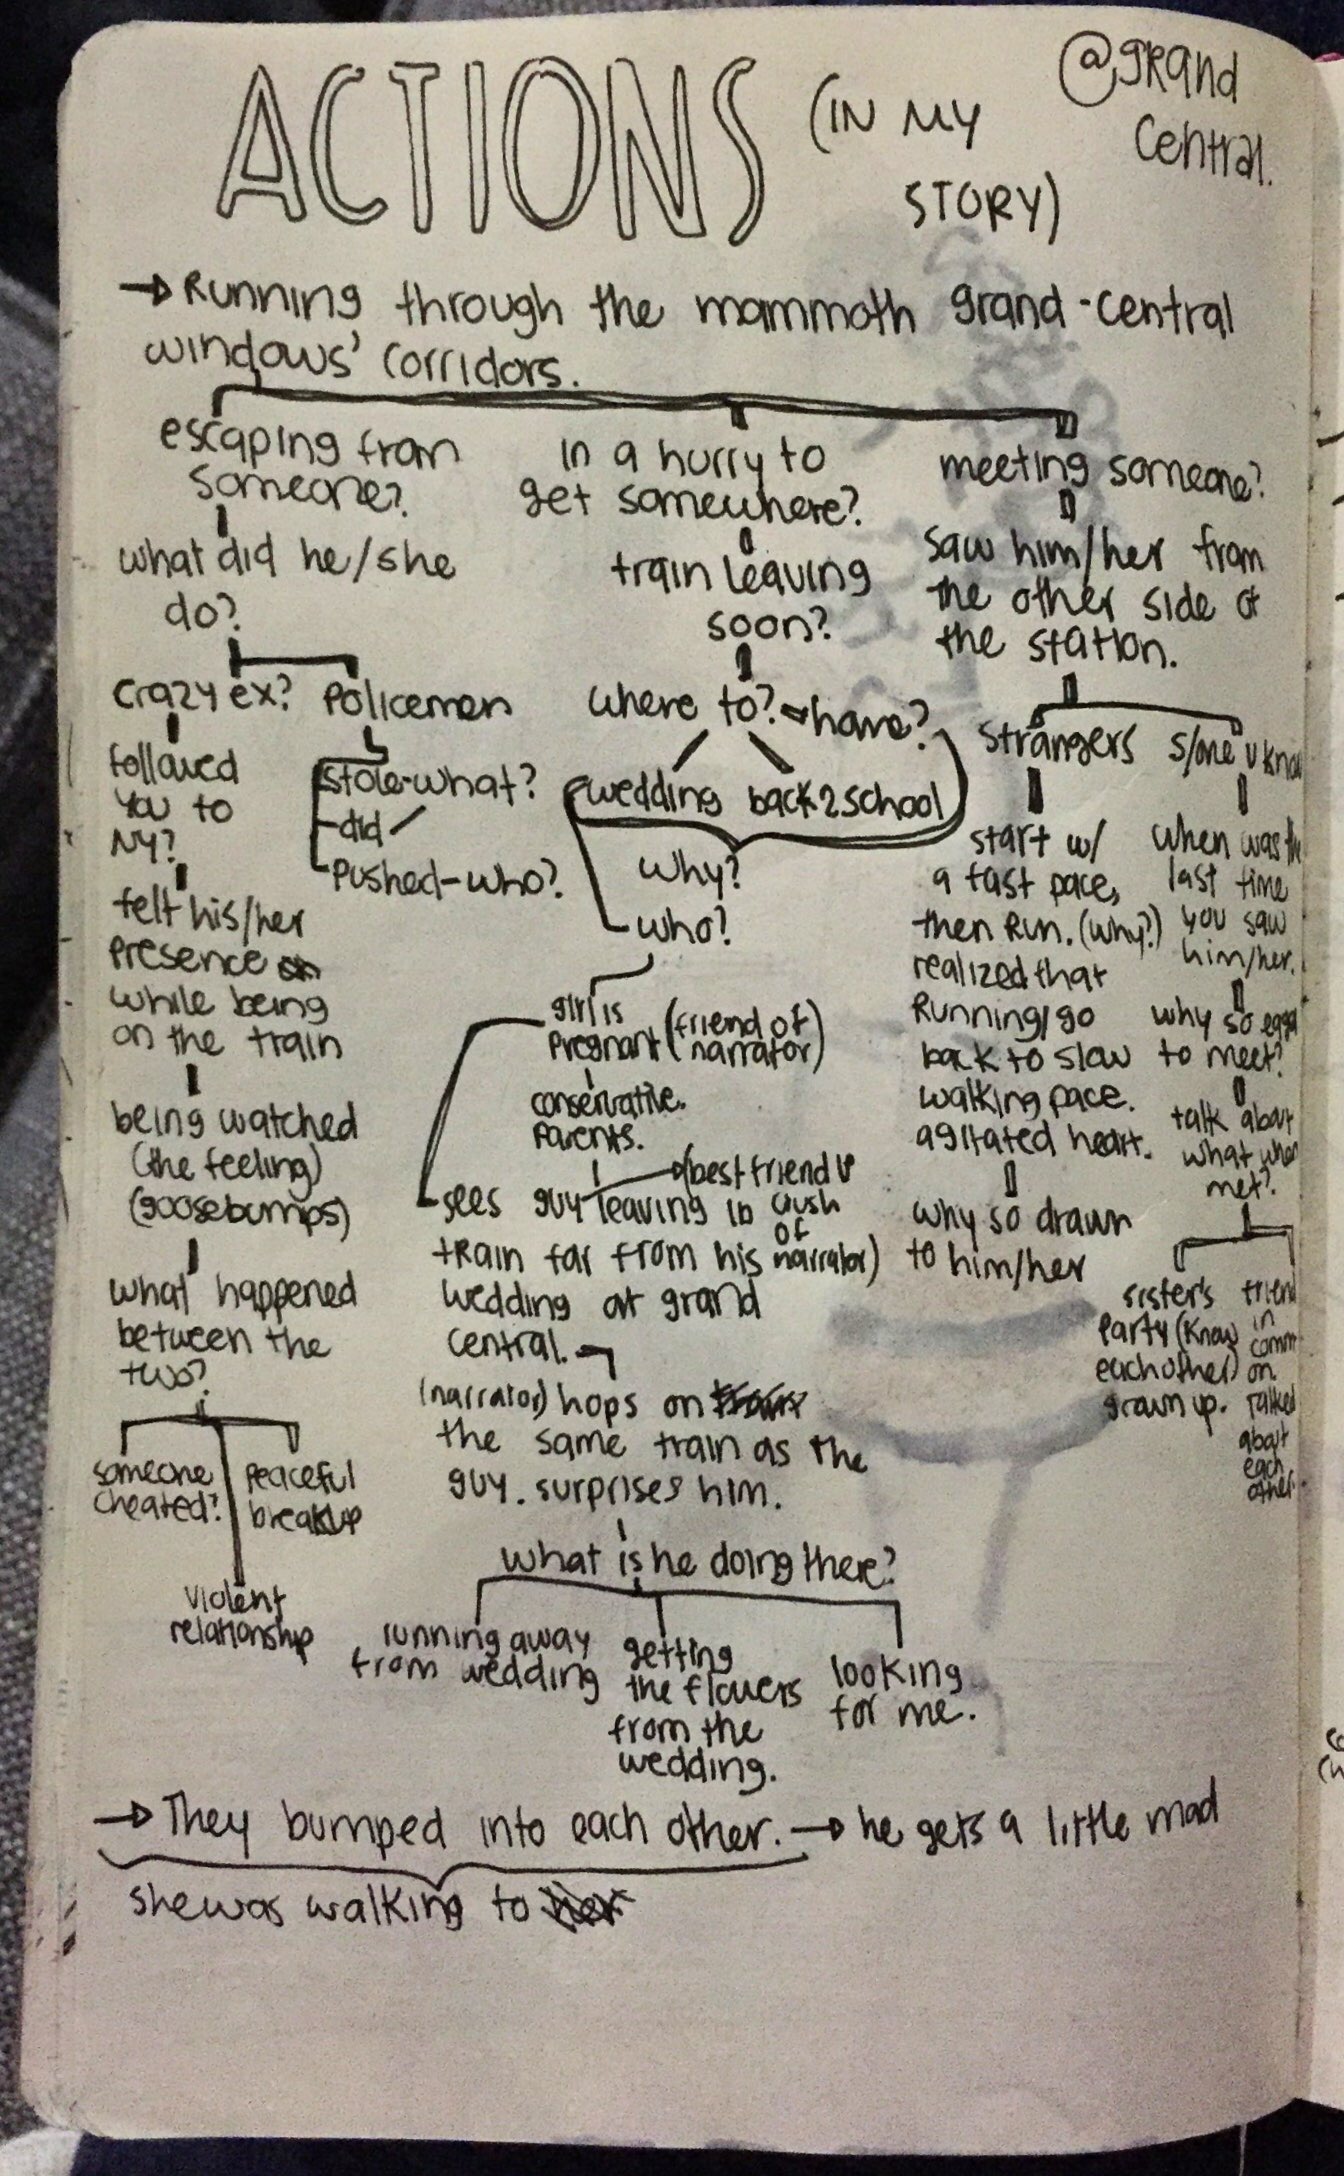 ACTIONS (IN MY STORY)
@grand central.
→ Running through the mammoth grand-central
windows' corridors.
escaping from
someone?
what did he/she
do?
crazy ex?
followed
you to
NY?
felt his/her
presence
while being
on the train
being watched
(the feeling)
(goosebumps)
what happened
between the
two?
someone
cheated?
violent
relationship
peaceful
breakup
policemen
stole-what?
did
pushed-who?
in a hurry to
get somewhere?
train leaving
soon?
where to?
home?
wedding
back2school
why?
who?
girl is
pregnant (friend of
narrator)
conservative.
parents.
sees guy leaving in
(best friend
crush
of
narrator)
train far from his
wedding at grand
central.
(narrator) hops on
the same train as the
guy. surprises him.
what is he doing there?
running away
from wedding
getting
the flowers
from the
wedding.
looking
for me.
meeting someone?
saw him/her from
the other side of
the station.
strangers
start w/
a fast pace,
then run. (why?)
realized that
Running/go
back to slow
walking pace.
agitated heart.
why so drawn
to him/her
s/one u
when was
last time
you saw
him/her.
why so
to meet?
talk about
what when
met?
sister's
party (know
each other)
grown up.
friend
in
on
talked
about
each
other.
→ They bumped into each other. → he gets a little mad
she was walking to